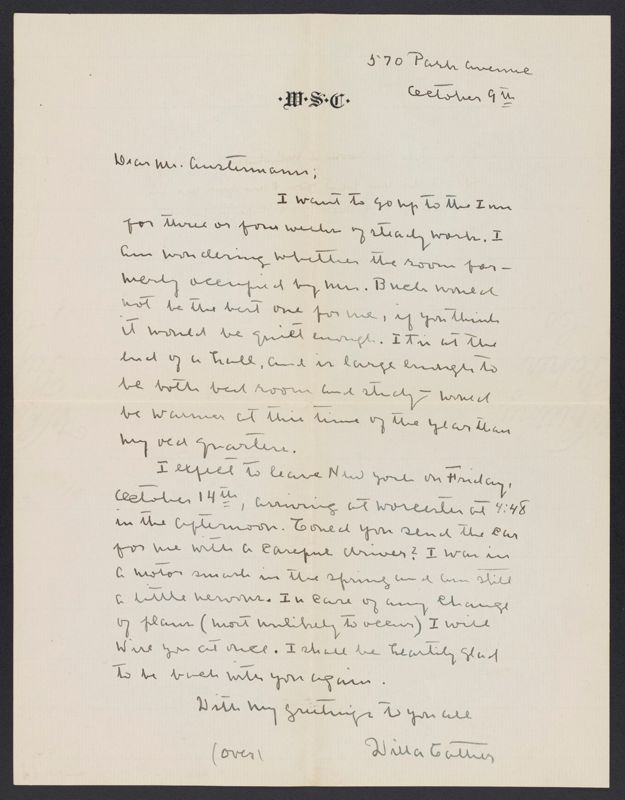 570 Park Avenue
October 9th
·W·S·C·
Dear Mr. Austermann;
I want to go up to the Inn
for three or four weeks of steady work. I
am wondering whether the room for-
merly occupied by Mrs. Buck would
not be the best one for me, if you think
it would be quiet enough. It is at the
end of a hall, and is large enough to
be both bed room and study - would
be warmer at this time of the year than
my old quarters.
I expect to leave New York on Friday,
October 14th, arriving at Worcester at 4:48
in the afternoon. Could you send the car
for me with a careful driver? I was in
a motor smash in the spring and am still
a little nervous. In case of any change
of plans (most unlikely to occur) I will
wire you at once. I shall be heartily glad
to be back with you again.
With my greetings to you all
Willa Cather
(over)